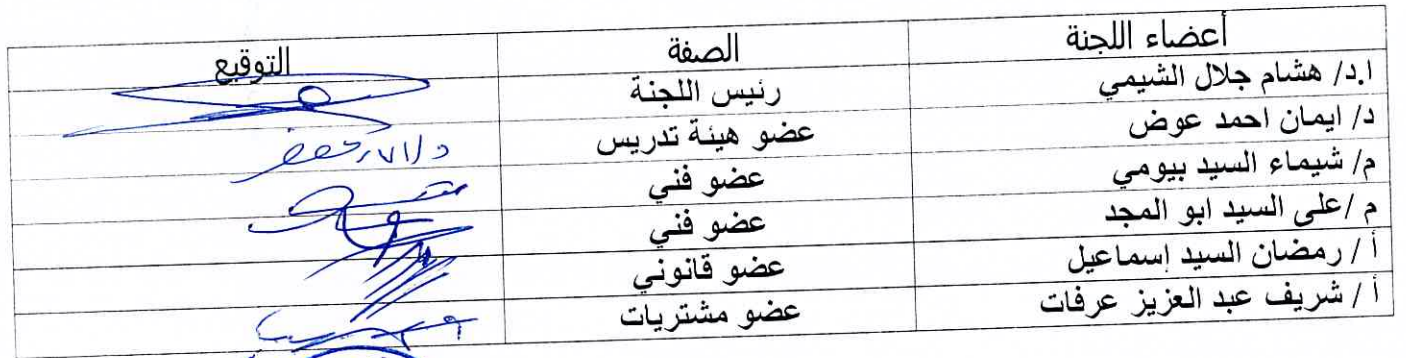 أعضاء اللجنة الصفة التوقيع
ا.د/ هشام جلال الشيمي رئيس اللجنة
د/ ايمان احمد عوض عضو هيئة تدريس
م/ شيماء السيد بيومي عضو فني
م /على السيد ابو المجد عضو فني
أ / رمضان السيد إسماعيل عضو قانوني
أ / شريف عبد العزيز عرفات عضو مشتريات